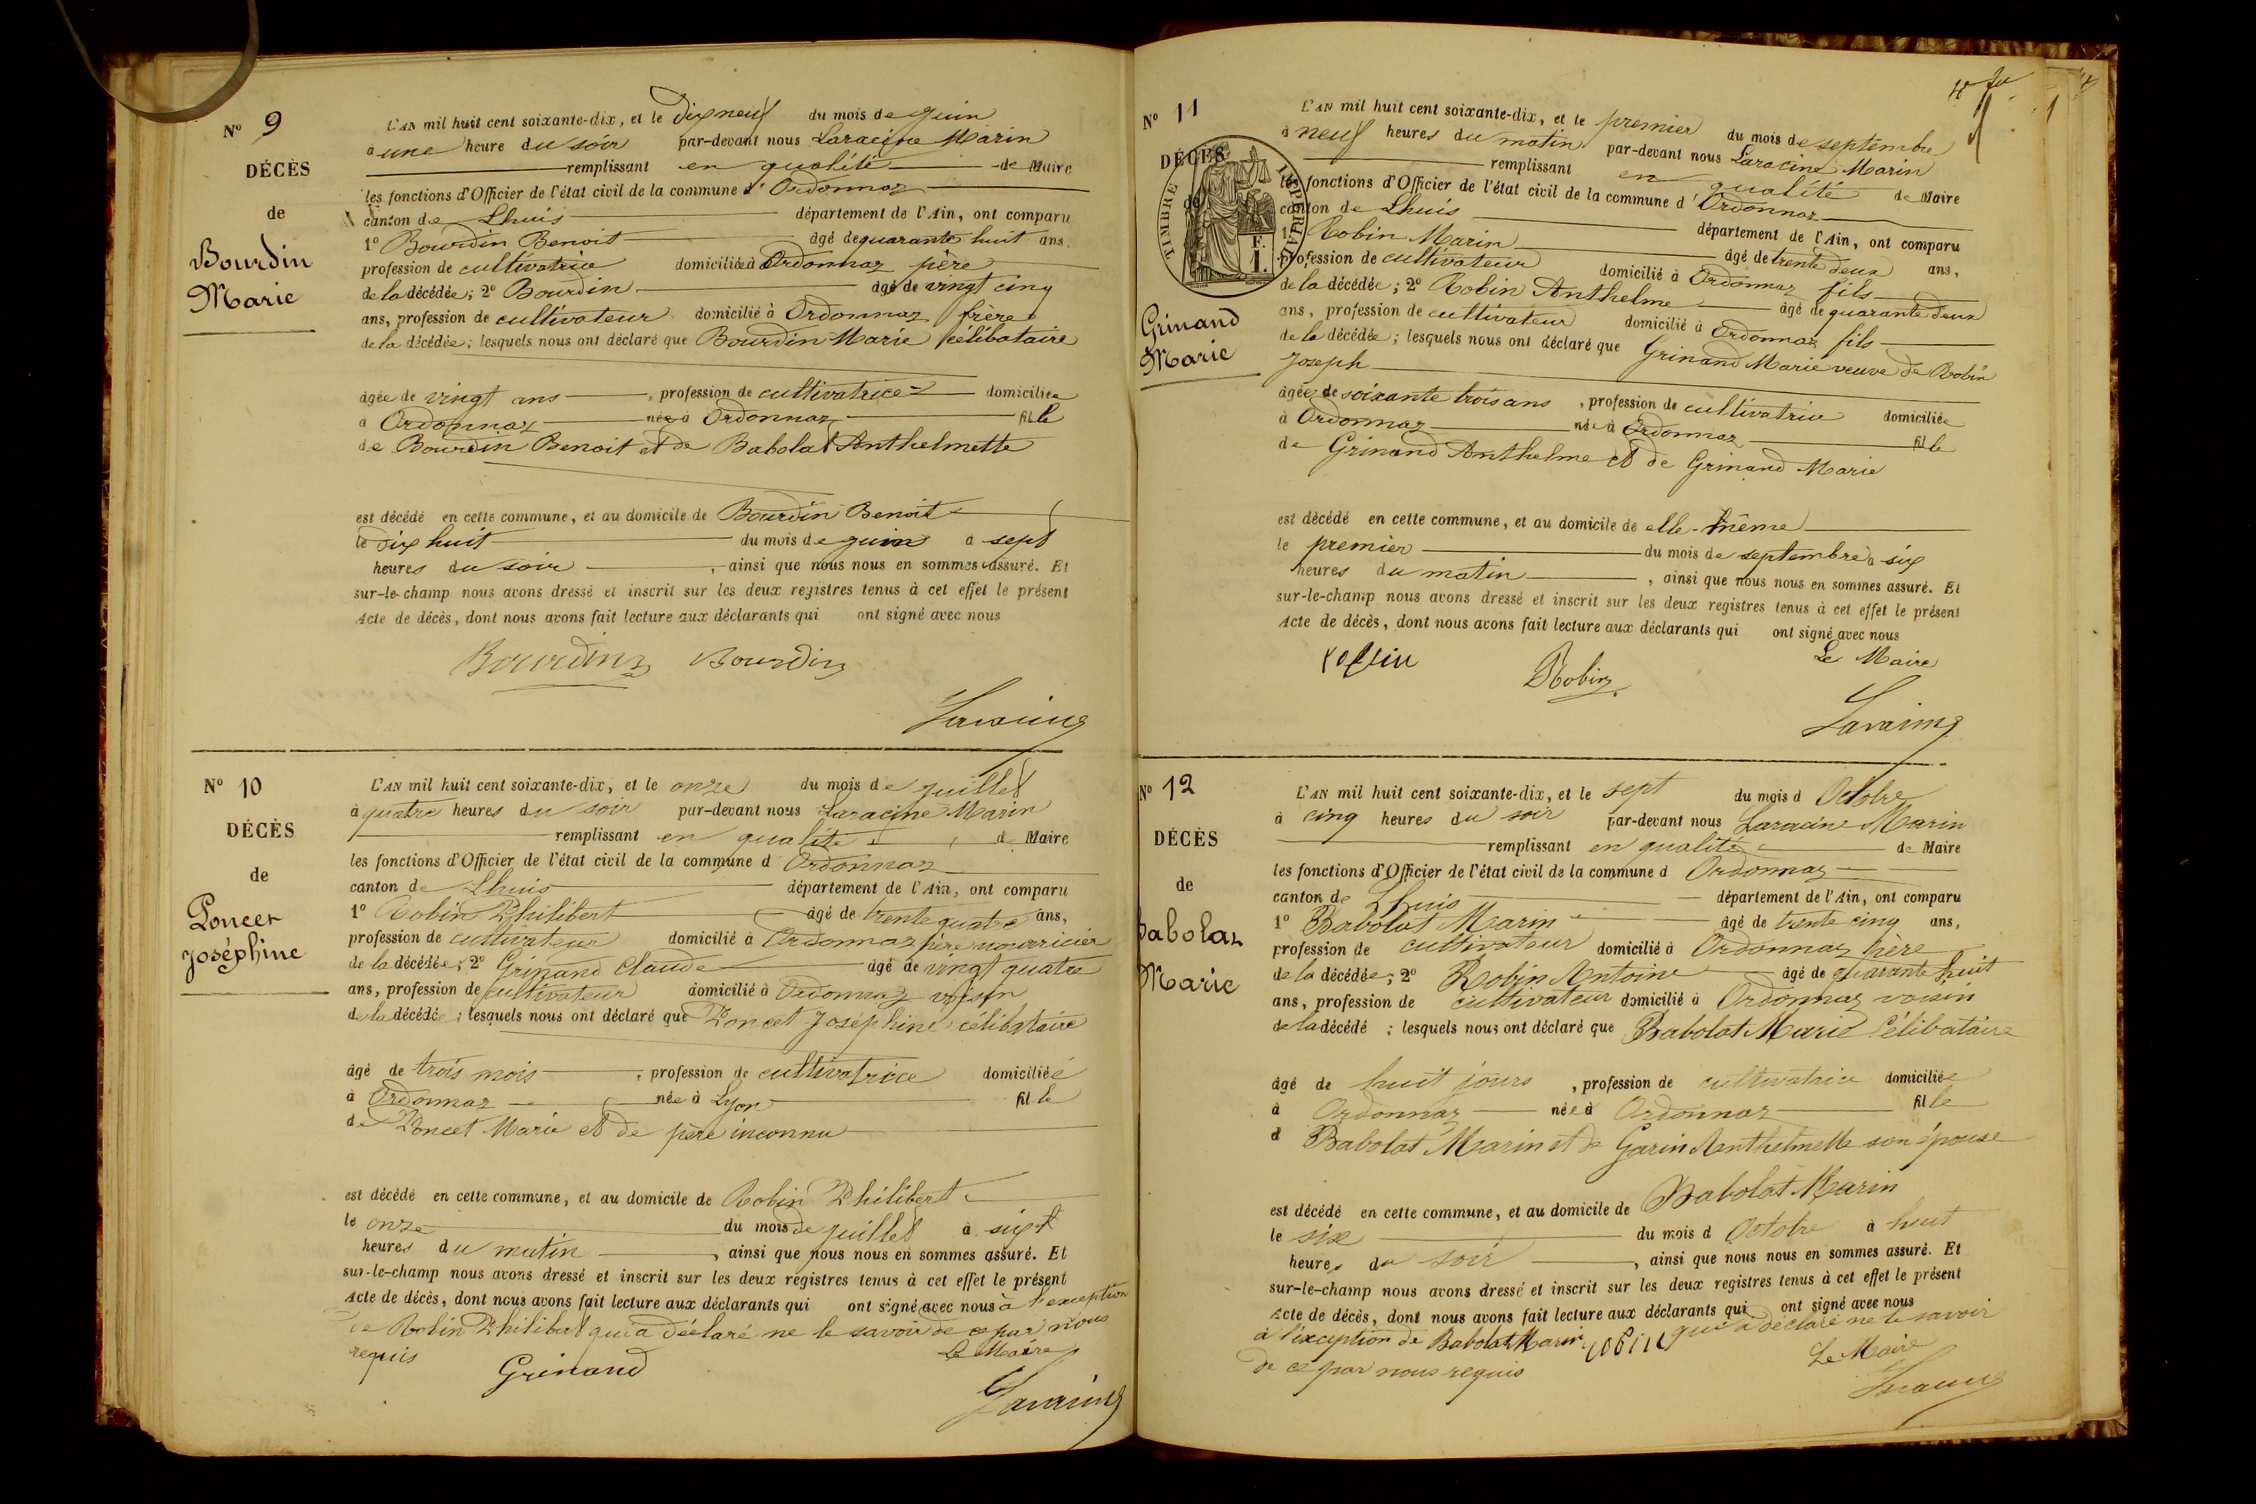 Nº 9
DÉCÈS
de
Bourdin
Marie
L'AN mil huit cent soixante-dix, et le dixneuf du mois de juin
à une heure du soir par-devant nous Laracine Marin
remplissant en qualité de Maire
les fonctions d'Officier de l'état civil de la commune d'Ordonnaz
canton de Lhuis département de l'Ain, ont comparu
1º Bourdin Benoit âgé de quarante huit ans,
profession de cultivatrice domicilié à Ordonnaz père
de la décédée; 2º Bourdin âgé de vingt cinq
ans, profession de cultivateur domicilié à Ordonnaz frère
de la décédée; lesquels nous ont déclaré que Bourdin Marie célibataire
âgée de vingt ans, profession de cultivatrice domiciliée
à Ordonnaz née à Ordonnaz fille
de Bourdin Benoit et de Babolat Anthelmette
est décédé en cette commune, et au domicile de Bourdin Benoit
le dix huit du mois de juin à sept
heures du soir, ainsi que nous nous en sommes assuré. Et
sur-le-champ nous avons dressé et inscrit sur les deux registres tenus à cet effet le présent
Acte de décès, dont nous avons fait lecture aux déclarants qui ont signé avec nous
Bourdin Bourdin
Laracine
Nº 10
DÉCÈS
de
Poncet
Joséphine
L'AN mil huit cent soixante-dix, et le onze du mois de juillet
à quatre heures du soir par-devant nous Laracine Marin
remplissant en qualité de Maire
les fonctions d'Officier de l'état civil de la commune d Ordonnaz
canton de Lhuis département de l'Ain, ont comparu
1º Robin Philibert âgé de trente quatre ans,
profession de cultivateur domicilié à Ordonnaz père nourricier
de la décédée; 2º Grinand Claude âgé de vingt quatre
ans, profession de cultivateur domicilié à Ordonnaz voisin
de la décédé; lesquels nous ont déclaré que Poncet Joséphine célibataire
âgé de trois mois, profession de cultivatrice domiciliée
à Ordonnaz née à Lyon fille
de Poncet Marie et de père inconnu
est décédé en cette commune, et au domicile de Robin Philibert
le onze du mois de juillet à sept
heures du matin, ainsi que nous nous en sommes assuré. Et
sur-le-champ nous avons dressé et inscrit sur les deux registres tenus à cet effet le présent
Acte de décès, dont nous avons fait lecture aux déclarants qui ont signé avec nous à l'exception
de Robin Philibert qui a déclaré ne le savoir de ce par nous
requis Le Maire
Grinand
Laracine
Nº 11
DÉCÈS
de
TIMBRE IMPÉRIAL
F.
1.
Grinand
Marie
L'AN mil huit cent soixante-dix, et le premier du mois de septembre
à neuf heures du matin par-devant nous Laracine Marin
remplissant en qualité de Maire
les fonctions d'Officier de l'état civil de la commune d'Ordonnaz
canton de Lhuis département de l'Ain, ont comparu
1º Robin Marin âgé de trente deux ans,
profession de cultivateur domicilié à Ordonnaz fils
de la décédée; 2º Robin Anthelme âgé de quarante deux
ans, profession de cultivateur domicilié à Ordonnaz fils
de la décédée; lesquels nous ont déclaré que Grinand Marie veuve de Robin
Joseph
âgée de soixante trois ans, profession de cultivatrice domiciliée
à Ordonnaz née à Ordonnaz fille
de Grinand Anthelme et de Grinand Marie
est décédé en cette commune, et au domicile de elle-même
le premier du mois de septembre à six
heures du matin, ainsi que nous nous en sommes assuré. Et
sur-le-champ nous avons dressé et inscrit sur les deux registres tenus à cet effet le présent
Acte de décès, dont nous avons fait lecture aux déclarants qui ont signé avec nous
Le Maire
robin Robin
Laracine
Nº 12
DÉCÈS
de
Babolaz
Marie
L'AN mil huit cent soixante-dix, et le sept du mois d Octobre
à cinq heures du soir par-devant nous Laracine Marin
remplissant en qualité de Maire
les fonctions d'Officier de l'état civil de la commune d Ordonnaz
canton de Lhuis département de l'Ain, ont comparu
1º Babolat Marin âgé de trente cinq ans,
profession de cultivateur domicilié à Ordonnaz père
de la décédée; 2º Robin Antoine âgé de quarante huit
ans, profession de cultivateur domicilié à Ordonnaz voisin
de la décédé; lesquels nous ont déclaré que Babolat Marie Célibataire
âgé de huit jours, profession de cultivatrice domiciliée
à Ordonnaz née à Ordonnaz fille
d Babolat Marin et de Garin Anthelmette son épouse
est décédé en cette commune, et au domicile de Babolat Marin
le six du mois d Octobre à huit
heures du soir, ainsi que nous nous en sommes assuré. Et
sur-le-champ nous avons dressé et inscrit sur les deux registres tenus à cet effet le présent
Acte de décès, dont nous avons fait lecture aux déclarants qui ont signé avec nous
à l'exception de Babolat Marin robin qui a déclaré ne le savoir
de ce par nous requis Le Maire
Laracine